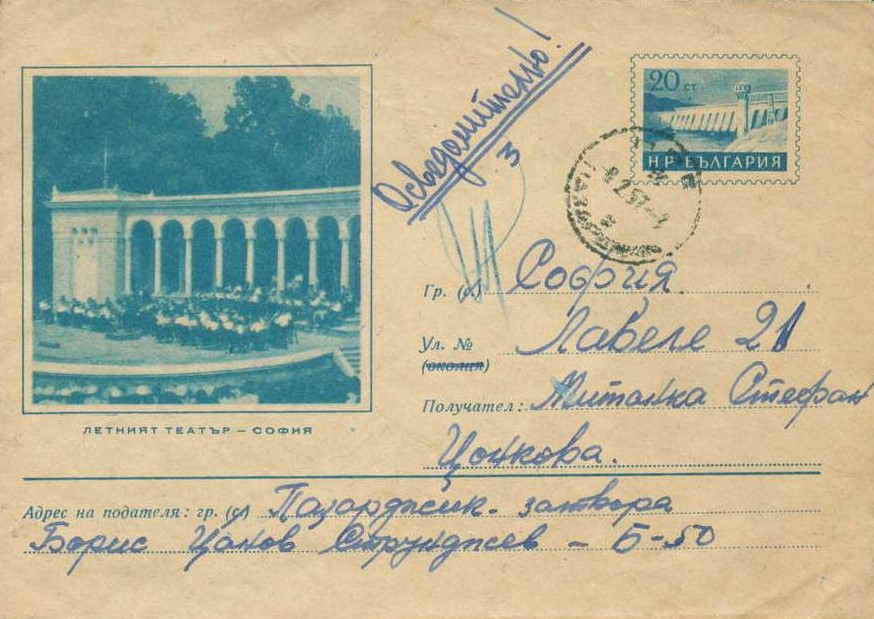 Осведомително!
З
20 СТ.
НР БЪЛГАРИЯ
8 2 57
Гр. (с.) София
Ул. № Лавеле 21
(околия)
Получател: Митанка Стефан
Цонкова.
ЛЕТНИЯТ ТЕАТЪР – СОФИЯ
Адрес на подателя: гр. (с.) Пазарджик - затвора
Борис Цанов Струнджев – Б-50